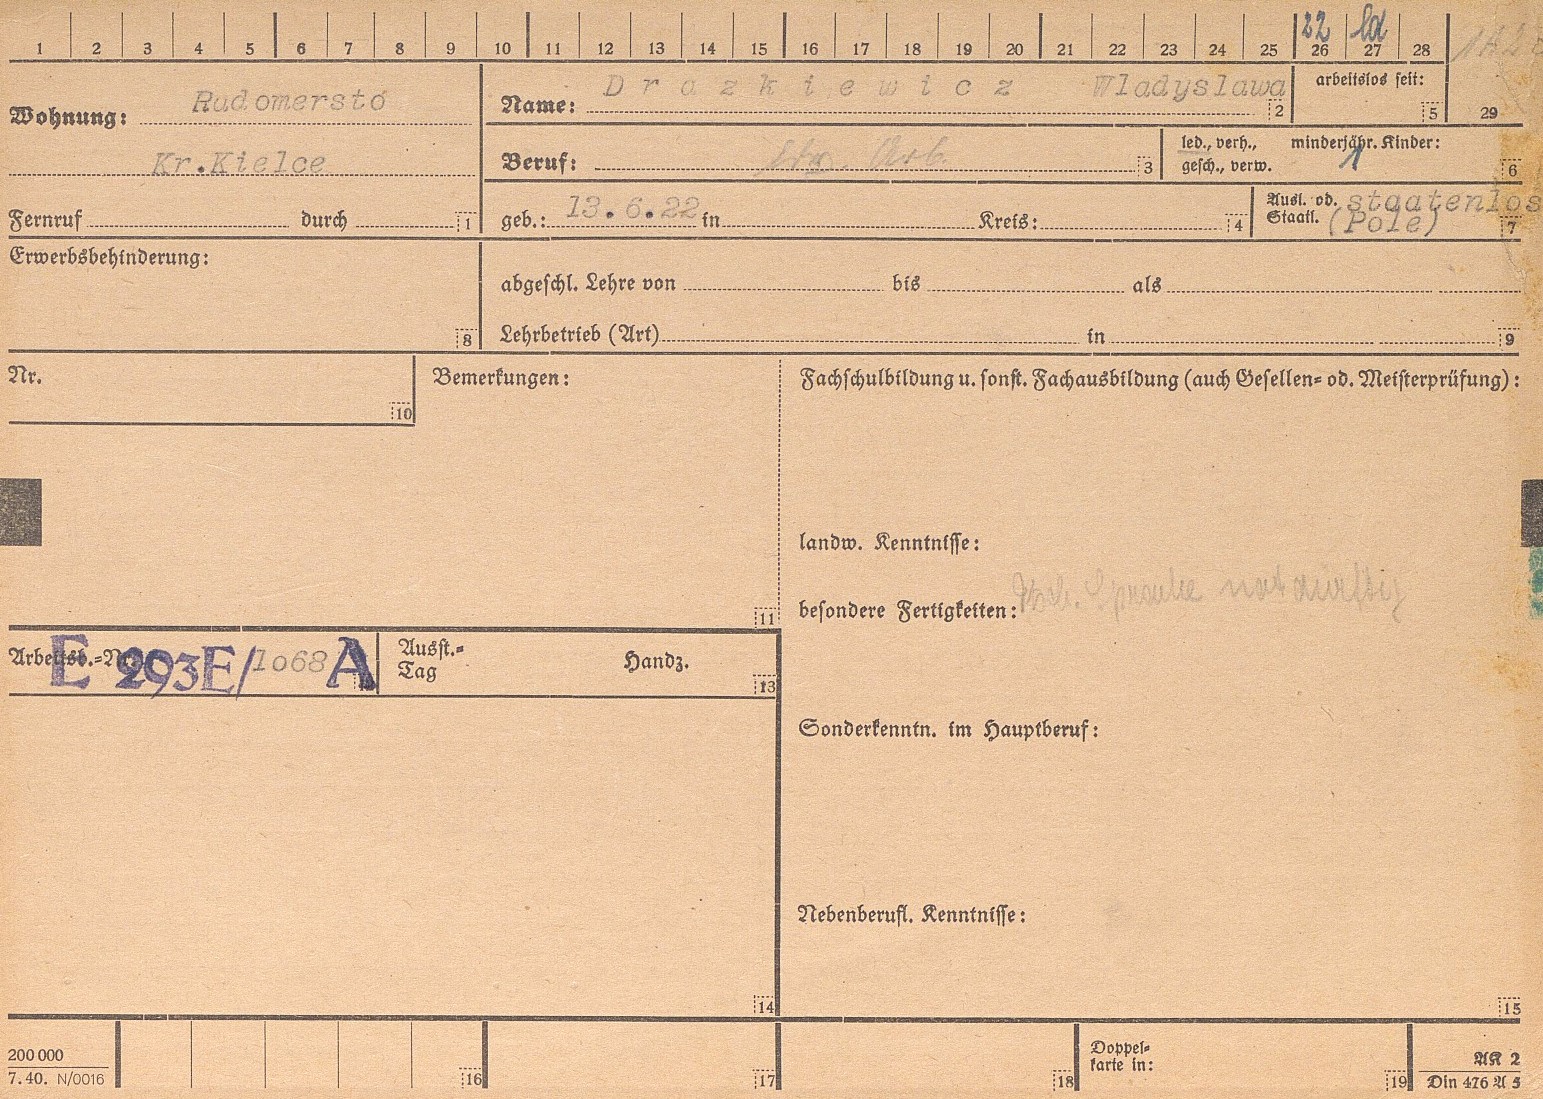 1 2 3 4 5 6 7 8 9 10 11 12 13 14 15 16 17 18 19 20 21 22 23 24 25 26 27 28
22 ld
Wohnung: Radomersto
Kr.Kielce
Fernruf durch 1
Name: Drazkiewicz Wladyslawa 2
arbeitslos seit: 5
29
Beruf: Arb. 3
led., verh., gesch., verw.
minderjähr. Kinder: 1 6
geb.: 13.6.22 in Kreis: 4
Ausl. od. Staatl. staatenlos (Pole) 7
Erwerbsbehinderung: 8
abgeschl. Lehre von bis als
Lehrbetrieb (Art) in 9
Nr. 10
Bemerkungen: 11
Fachschulbildung u. sonst. Fachausbildung (auch Gesellen- od. Meisterprüfung):
landw. Kenntnisse:
besondere Fertigkeiten: Sprache notdürftig
Arbeitsb.-Nr. E 293E/1068 A
Ausst.-Tag Handz. 13
Sonderkenntn. im Hauptberuf:
Nebenberufl. Kenntnisse:
14
15
200 000
7. 40. N/0016
16
17
18
Doppel-
karte in: 19
AK 2
Din 476 A 5